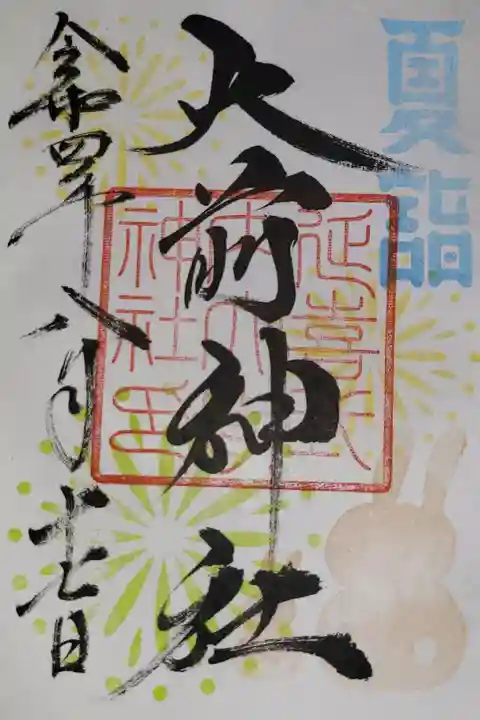 夏詣
大前神社
延喜式内
神社
令和四年八月十七日